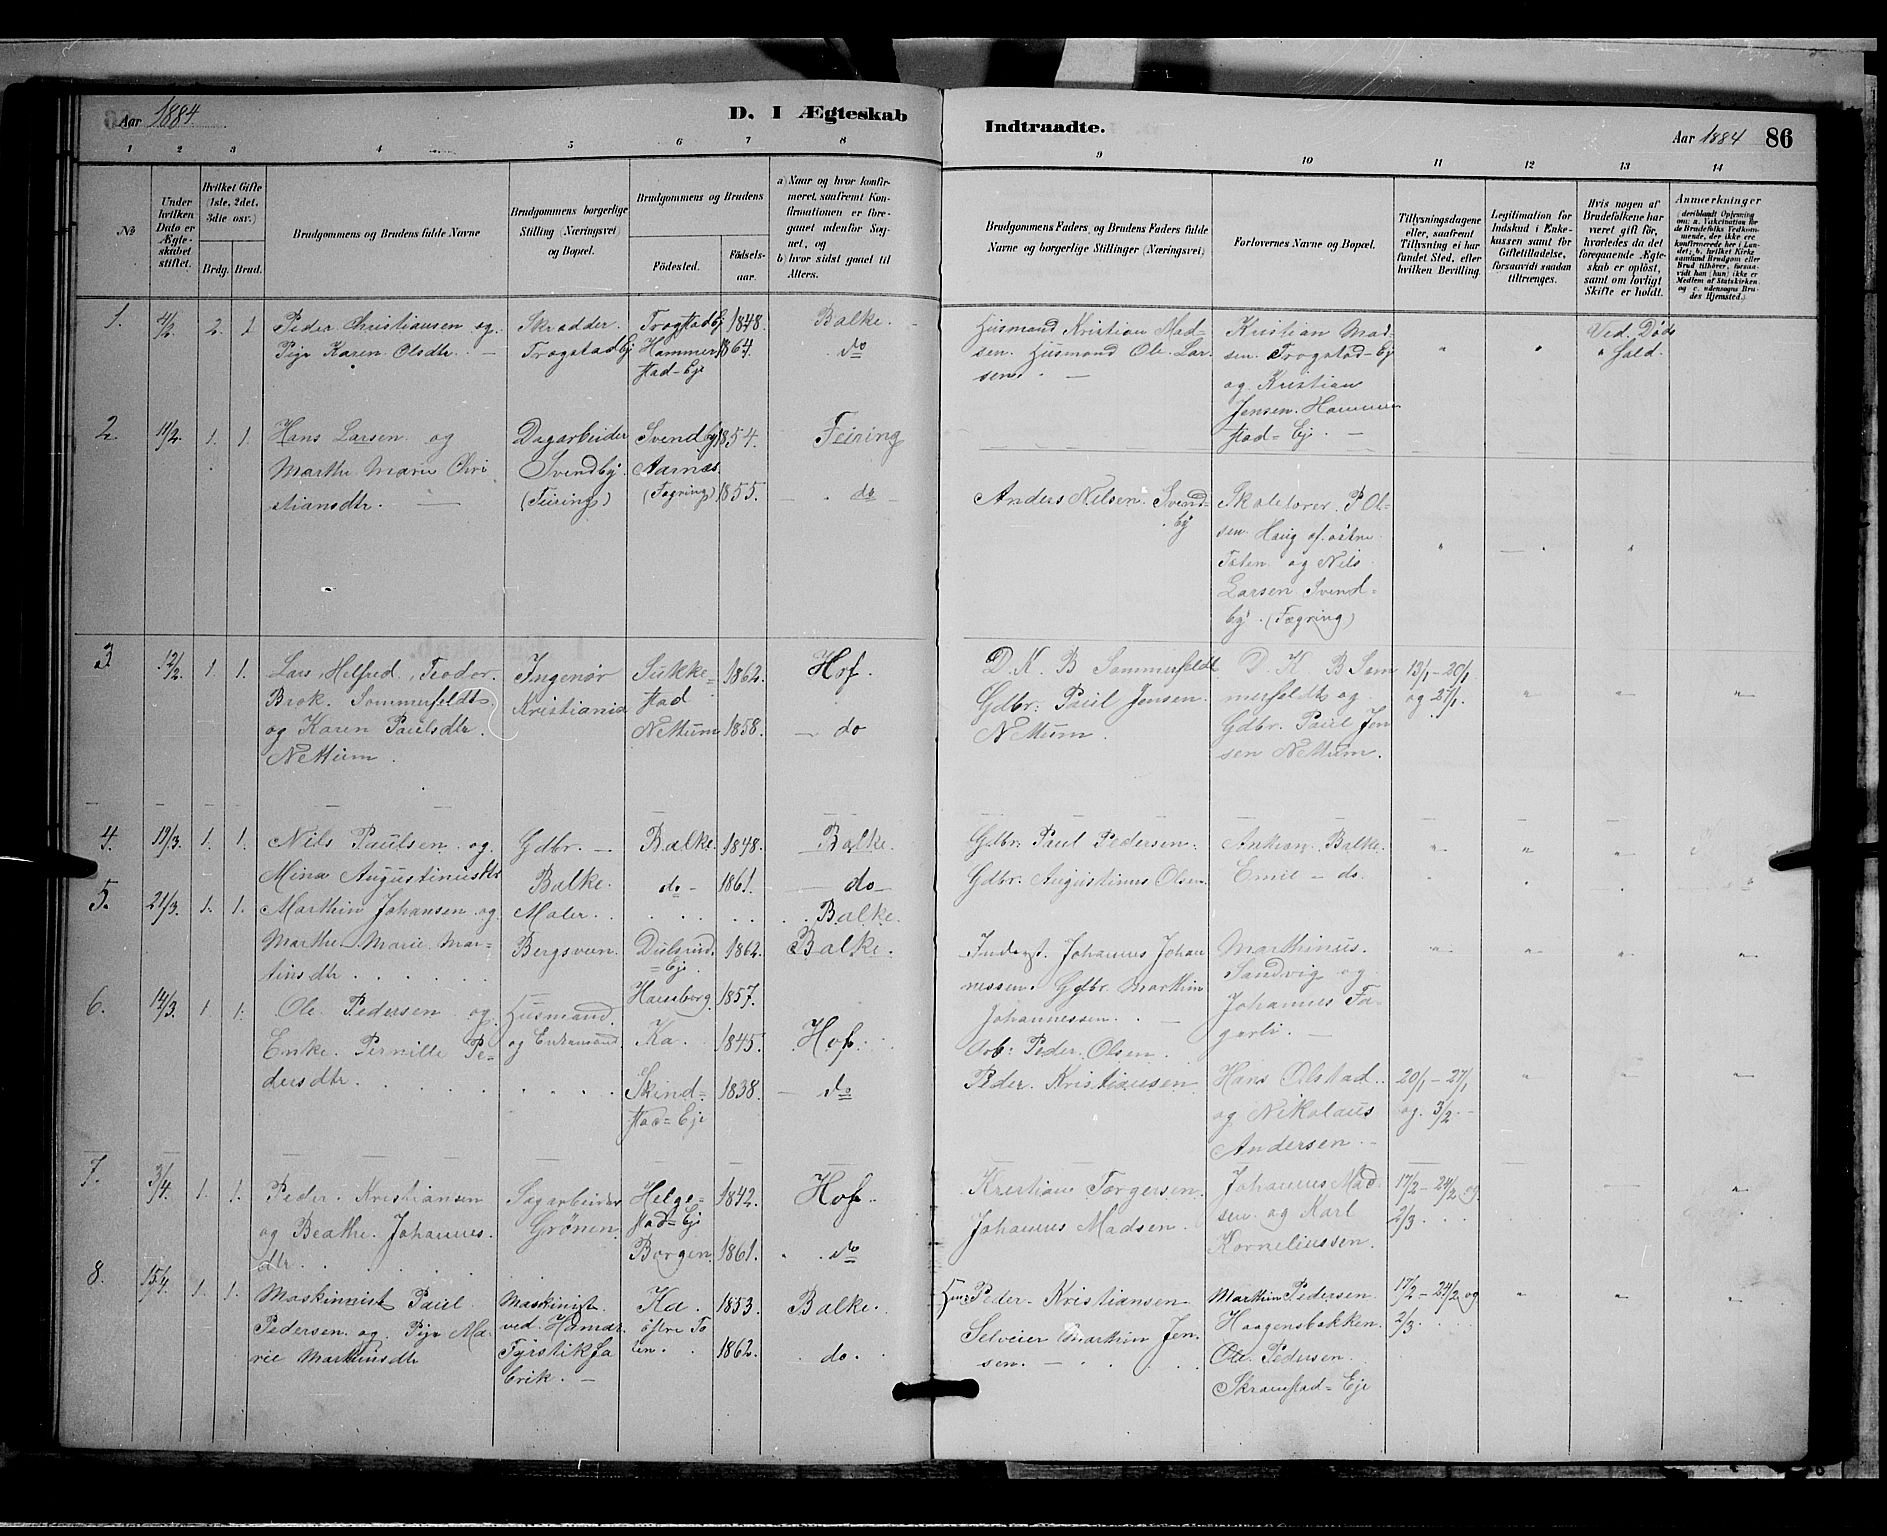 Aar 1884
D. I Ægteskab
Indtraadte.
Aar 1884 86
1 2 3 4 5 6 7 8 9 10 11 12 13 14
No
Under hvilken Dato er Ægteskabet stiftet.
Hvilket Gifte (1ste, 2det, 3die osv.)
Brdg. Brud.
Brudgommens og Brudens fulde Navne
Brudgommens borgerlige Stilling (Næringsvei) og Bopæl.
Brudgommens og Brudens
Fødested.
Fødselsaar.
a) Naar og hvor konfirmeret, saafremt Konfirmationen er foregaaet udenfor Sognet, og
b) hvor sidst gaaet til Alters.
Brudgommens Faders og Brudens Faders fulde Navne og borgerlige Stillinger (Næringsvei)
Forlovernes Navne og Bopæl.
Tillysningsdagene eller, saafremt Tillysning ei har fundet Sted, efter hvilken Bevilling.
Legitimation for Indskud i Enkekassen samt for Giftetilladelse, forsaavidt saadan tiltrænges.
Hvis nogen af Brudefolkene har været gift før, hvorledes da det foregaaende Ægteskab er opløst, samt om lovligt Skifte er holdt.
Anmærkninger
(deriblandt Opjesning om: a. Vakcination for de Brudefolks Vedkommende, der ikke ere konfirmerede her i Landet; b. hvilket Kirkesamfund Brudgom eller Brud tilhører, forsaavidt han (hun) ikke er Medlem af Statskirken, og c. udensogns Brudes Hjemsted.)
1. 4/2 2. 1 Peder Christiansen og Skrædder. Trogstad Ej 1848. Balke.
Pige Karen Olsdtr. — Trogstad Ej Hammerstad-Eje 1864. do
Husmand Kristian Madsen. Husmand Ole Larsen. —
Kristian Madsen Trogstad-Ej og Kristian Jensen Hammerstad=Eje. —
Ved Dødsfald.
2. 11/2. 1. 1. Hans Larsen og Dagarbeider Svendby 1854. Feiring
Marthe Marie Christiansdtr. — Svendby (Feiring) Aarnæs (Fægring) 1855. — do
Anders Nilsen Svendby
Skolelærer P Olsen Haug af østre Toten og Nils Larsen Svendby. (Fægring)
3 12/2. 1. 1. Lars Helfred Teodor Ingenør
Brok Sommerfeldt Kristiania Sukkestad 1862. Hof.
og Karen Paulsdtr. Nettum 1858. — do
Nettum.
D. K. B Sommerfeldt
Gdbr: Paul Jensen Nettum.
D K B Sommerfeldt og Gdbr. Paul Jensen Nettum.
13/1 - 20/1 og 27/1.
4. 19/3. 1. 1. Nils Paulsen og Gdbr. — Balke. 1848. Balke.
Mina Augustinusdtr Balke. do — 1861. — do —
Gdbr. Paul Pedersen. Balke.
Gdbr. Augustinus Olsen. Emil — do.
5. 21/3. 1. 1. Marthin Johansen og Maler. Balke.
Marthe Marie Martinsdtr. Bergsveen. Eje 1862. Balke.
1857.
Inderst. Johannes Johannessen. Gdbr. Marthin Johannessen. —
Marthinus Sandvig og Johannes Fagerli. —
6. 14/3. 1. 1. Ole Pedersen og Husmand. Ka. 1845. Hof.
Enke Pernille Pedersdtr. og Enkemand. Skindstad=Eje 1838. — do
Arb: Peder Olsen.
Peder Kristiansen
Hans Olstad og Nikolaus Andersen. —
20/1 - 27/1 og 3/2. —
7. 3/4. 1. 1. Peder Kristiansen Sagarbeider Helgestad=Eje 1842. Hof.
og Beathe Johannesdtr. Grønen. Borgen. 1861. do
Kristian Torgersen.
Johannes Madsen.
Johannes Madsen og Karl Korneliussen.
17/2 - 24/2 og 2/3.
8. 15/4. 1. 1. Maskinnist Paul Maskinist Ka 1853. Balke.
Pedersen og Pige Marie Marthinsdtr ved Hamar Fyrstikfabrik. — østre Toten. 1862. do.
Peder Kristiansen
Selveier Marthin Jensen. —
Marthin Pedersen Haagensbakken.
Ole Pedersen Skramstad=Eje
17/2 - 24/2 og 2/3.